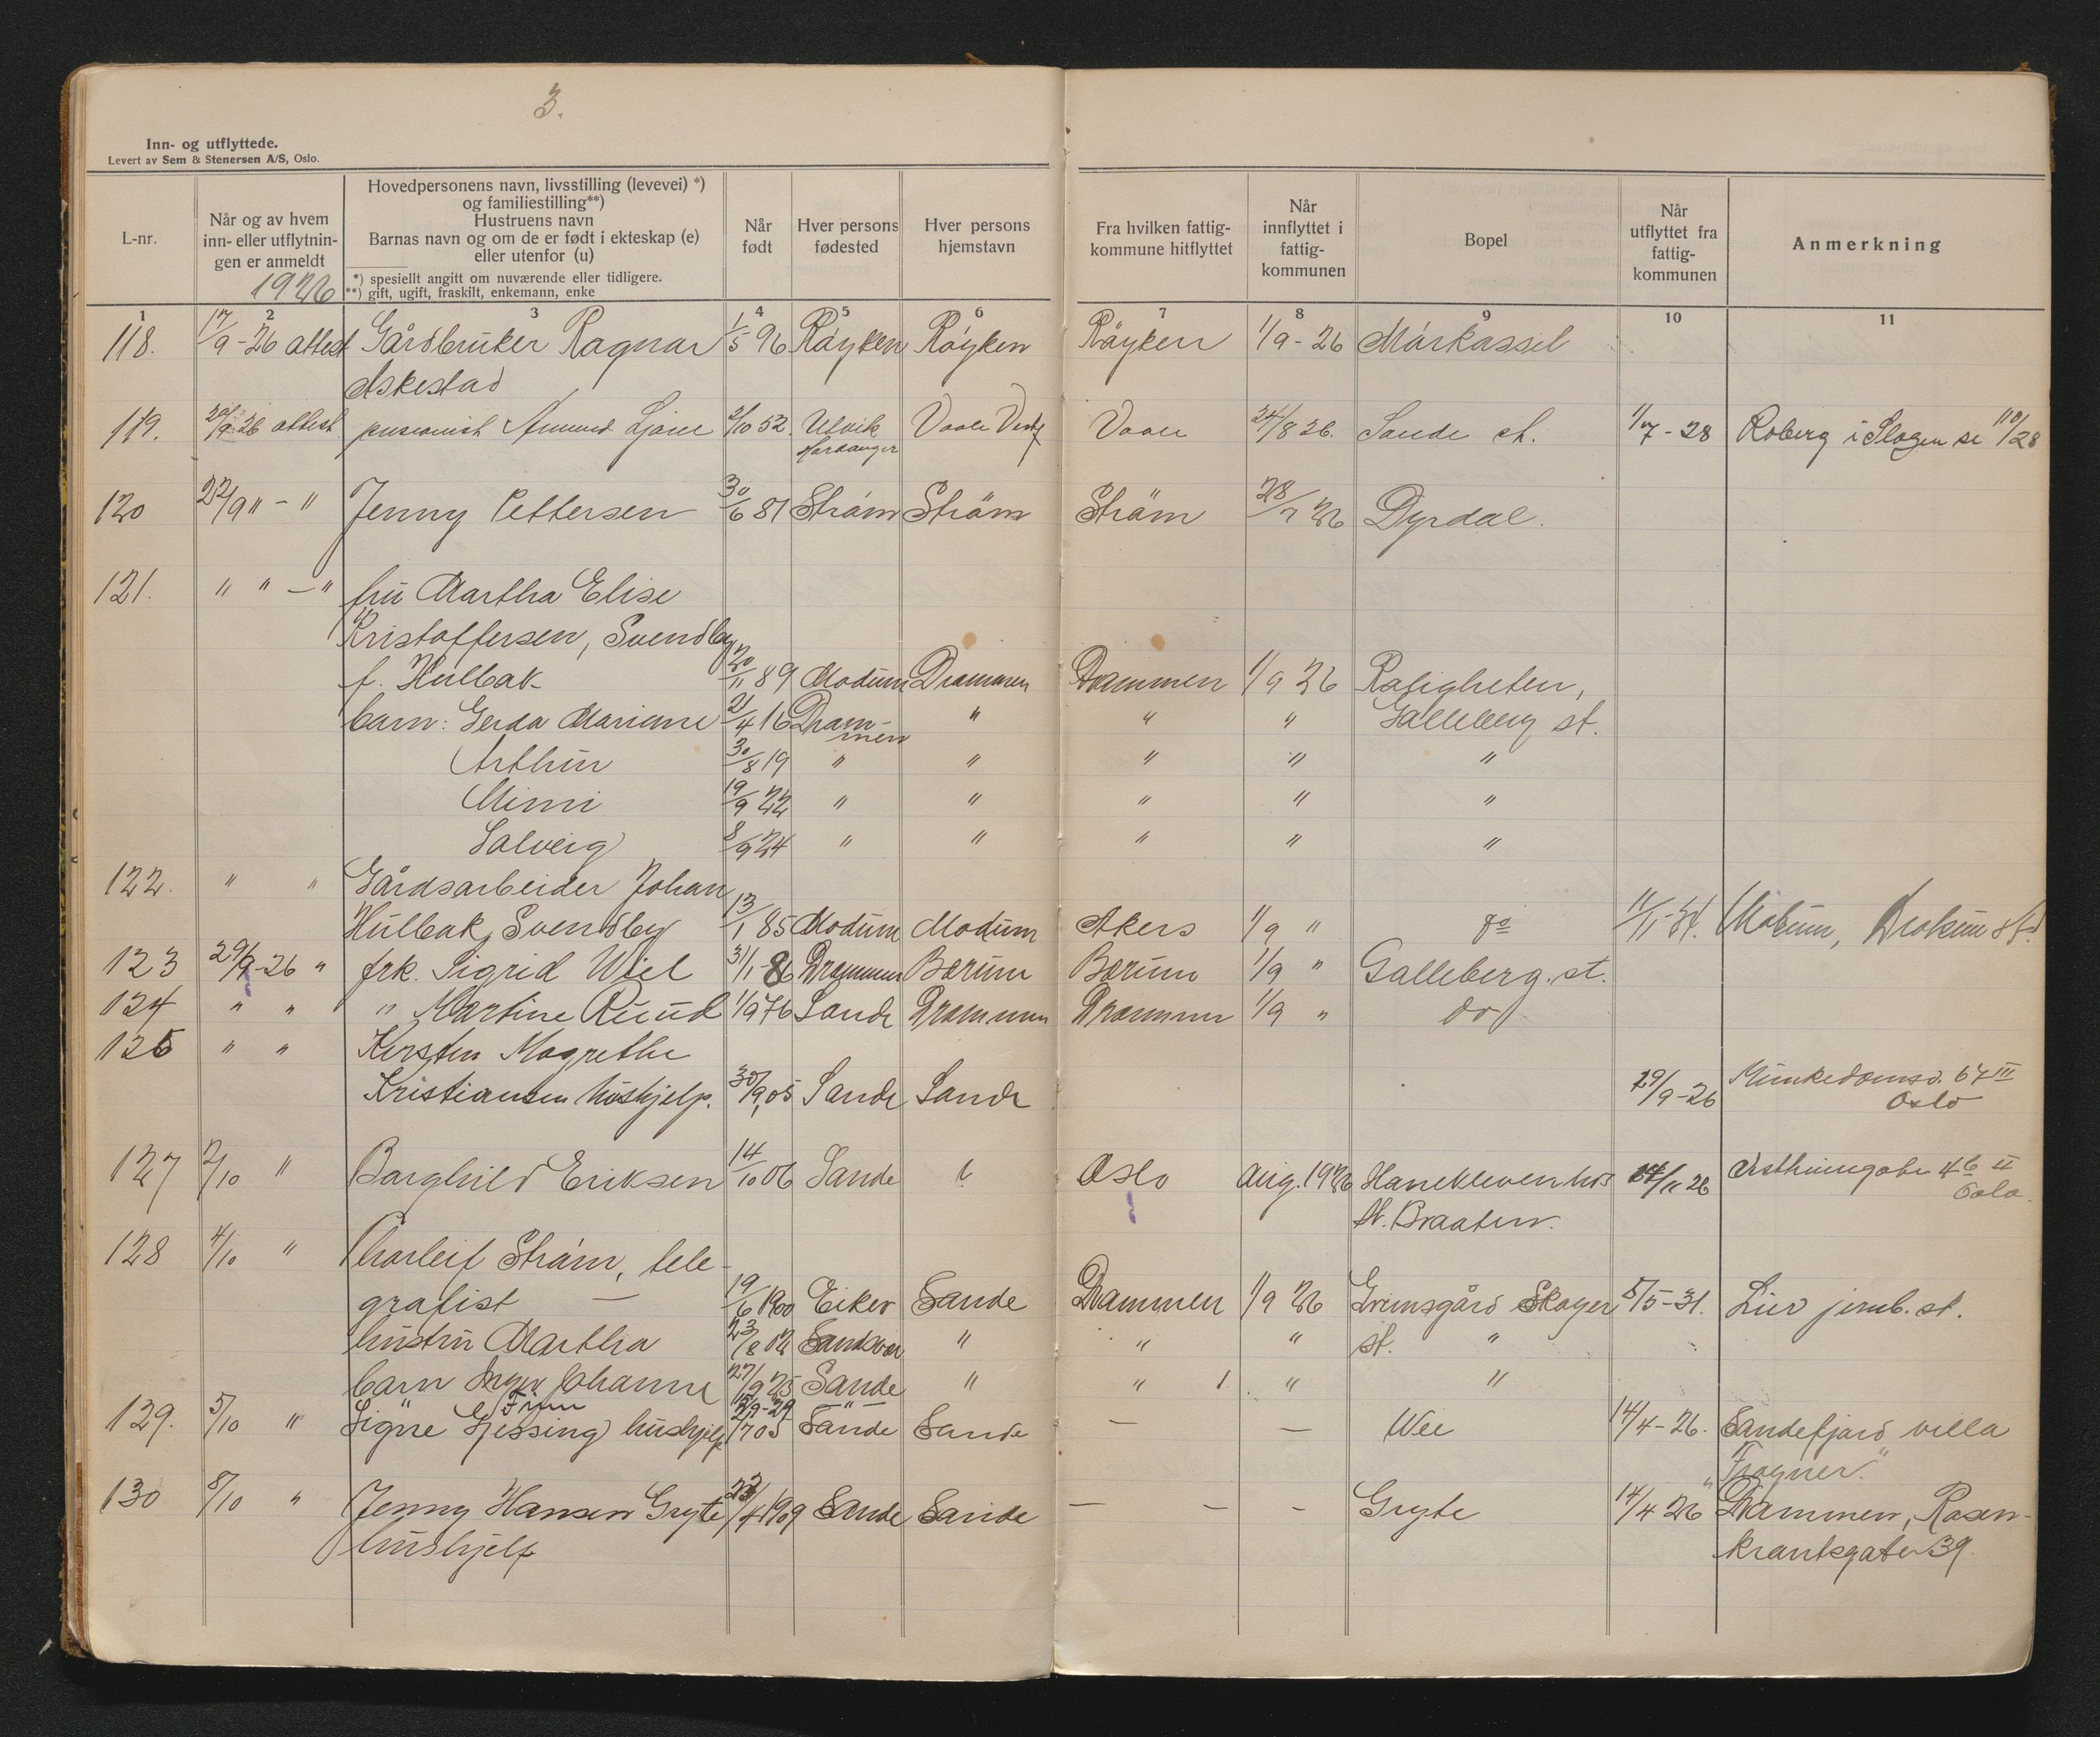 3.
Inn- og utflyttede.
Levert av Sem & Stenersen A/S, Oslo.
L-nr.
Når og av hvem
inn- eller utflytnin-
gen er anmeldt
1926
Hovedpersonens navn, livsstilling (levevei) *)
og familiestilling**)
Hustruens navn
Barnas navn og om de er født i ekteskap (e)
eller utenfor (u)
*) spesiellt angitt om nuværende eller tidligere.
**) gift, ugift, fraskilt, enkemann, enke
Når
født
Hver persons
fødested
Hver persons
hjemstavn
Fra hvilken fattig-
kommune hitflyttet
Når
innflyttet i
fattig-
kommunen
Bopel
Når
utflyttet fra
fattig-
kommunen
Anmerkning
1 2 3 4 5 6 7 8 9 10 11
118. 17/9-26 attest Gårdbruker Ragnar 1/5 96 Röyken Röyken Röyken 1/9-26 Mörkassel
Askestad
119. attest pensionist Amund 2/10 52. Ulvik Vaale Vaale 24/8 26. Sande st. 1/7-28 Roberg i Slagen
Hardanger
120 22/9 " - " Jenny Pettersen 30/6 81 Ström Ström Ström 28/7 26 Dyrdal.
121. " " - " fru Martha Elise
Kristoffersen, Svendby
f. Hulbak 20/11 89 Modum Drammen Drammen 1/9 26 Roligheten,
barn: Gerda Marianne 2/4 16 Dram- " " " Galleberg st.
men
Arthur 30/8 19 " " " " "
Mimi 19/9 22 " " " " "
Solveig 8/9 24 " " " " "
122. " " Gårdsarbeider Johan
Hulbak, Svendby 13/1 85 Modum Modum Akers 1/9 " do 11/11-31. Modum,
123 29/9-26 " frk. Sigrid Wiel 31/1-86 Drammen Bærum Bærum 1/9 " Galleberg. st.
124 " " " Martine Ruud 1/9 76 Sande Drammen Drammen 1/9 " do
126 " " Kersten Magrethe
Kristiansen hushjelp. 30/9,05 Sande Sande 29/9-26 Munkedamsv. 67 III
Oslo
127 2/10 " Borghild Eriksen 14/10 06 Sande Oslo Aug. 1926 Hanekleven hos 14/11 26 4b II
Oslo.
N. Braaten.
128 4/10 " Thorleif Ström, tele-
grafist — 19/6 1900 Eiker Sande Drammen 1/9 26 Grimsgård Skoger 5/5-31. Lier jernb. st.
hustru Martha 23/8 02 Sandsvær " " " st. "
barn Inger Johanne 27/9 25 Sande " " " "
" Finn 29 "
129. 5/10 " Signe Gjessing hushjelp 1/7 05 Sande Sande — — Wee 14/4-26. Sandefjord villa
"Frogner."
130 8/10 " Jenny Hansen Gryte 23/4 1909 Sande Sande — — - Gryte 14/4 26 Drammen, Rosen-
hushjelp krantsgaten 39.